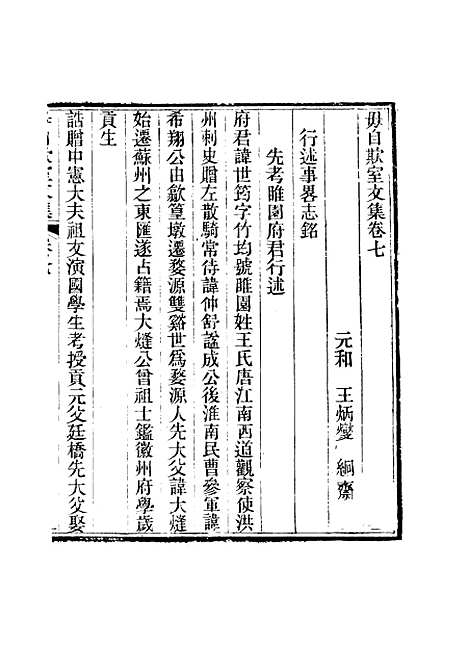 毋自欺室文集卷七
元和　王炳燮　絅齋
行述事畧志銘
先考睢園府君行述
府君諱世筠字竹均號睢園姓王氏唐江南西道觀察使洪
州刺史贈左散騎常侍諱仲舒諡成公後淮南民曹參軍諱
希翔公由歙篁墩遷婺源雙谿世爲婺源人先大父諱大熢
始遷蘇州之東匯遂占籍焉大熢公曾祖士鑑徽州府學歲
貢生
誥贈中憲大夫祖文演國學生考授貢元父廷橋先大父娶